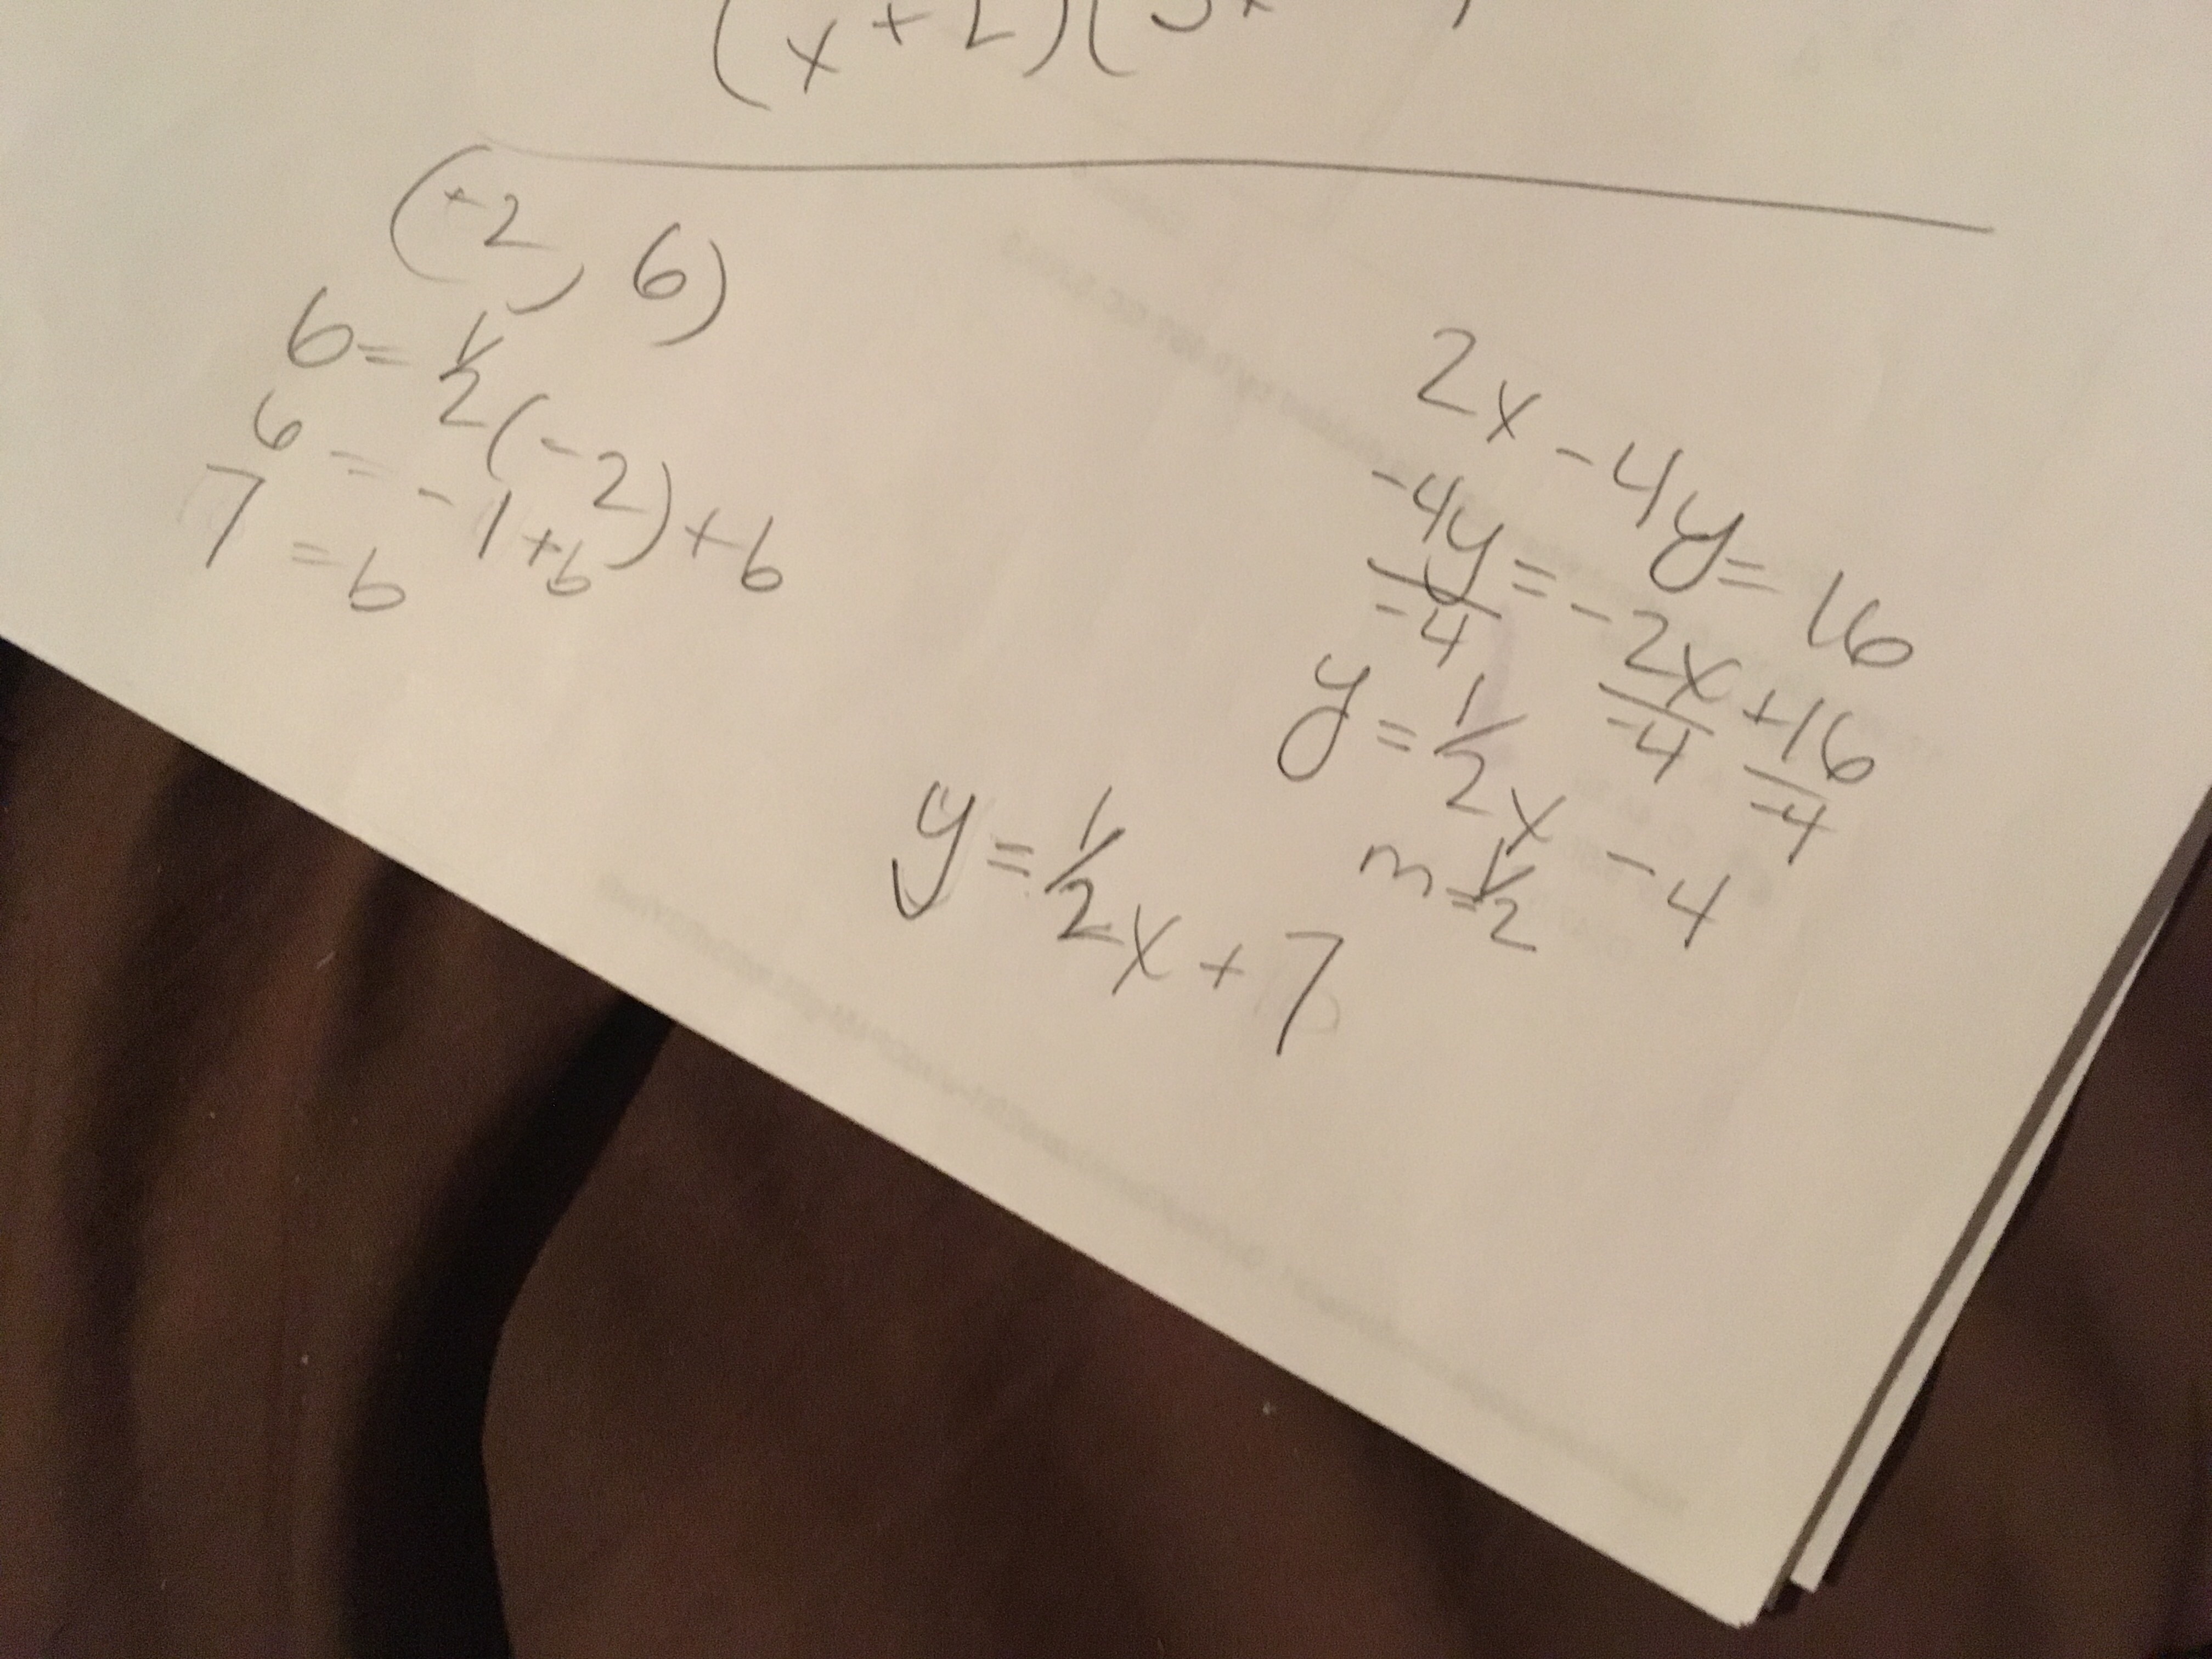 (x + 2)(
(-2, 6)
6 = 1/2(-2) + b
6 = -1 + b
7 = b
2x - 4y = 16
-4y/-4 = -2x/-4 + 16/-4
y = 1/2x - 4
m = 1/2
y = 1/2x + 7